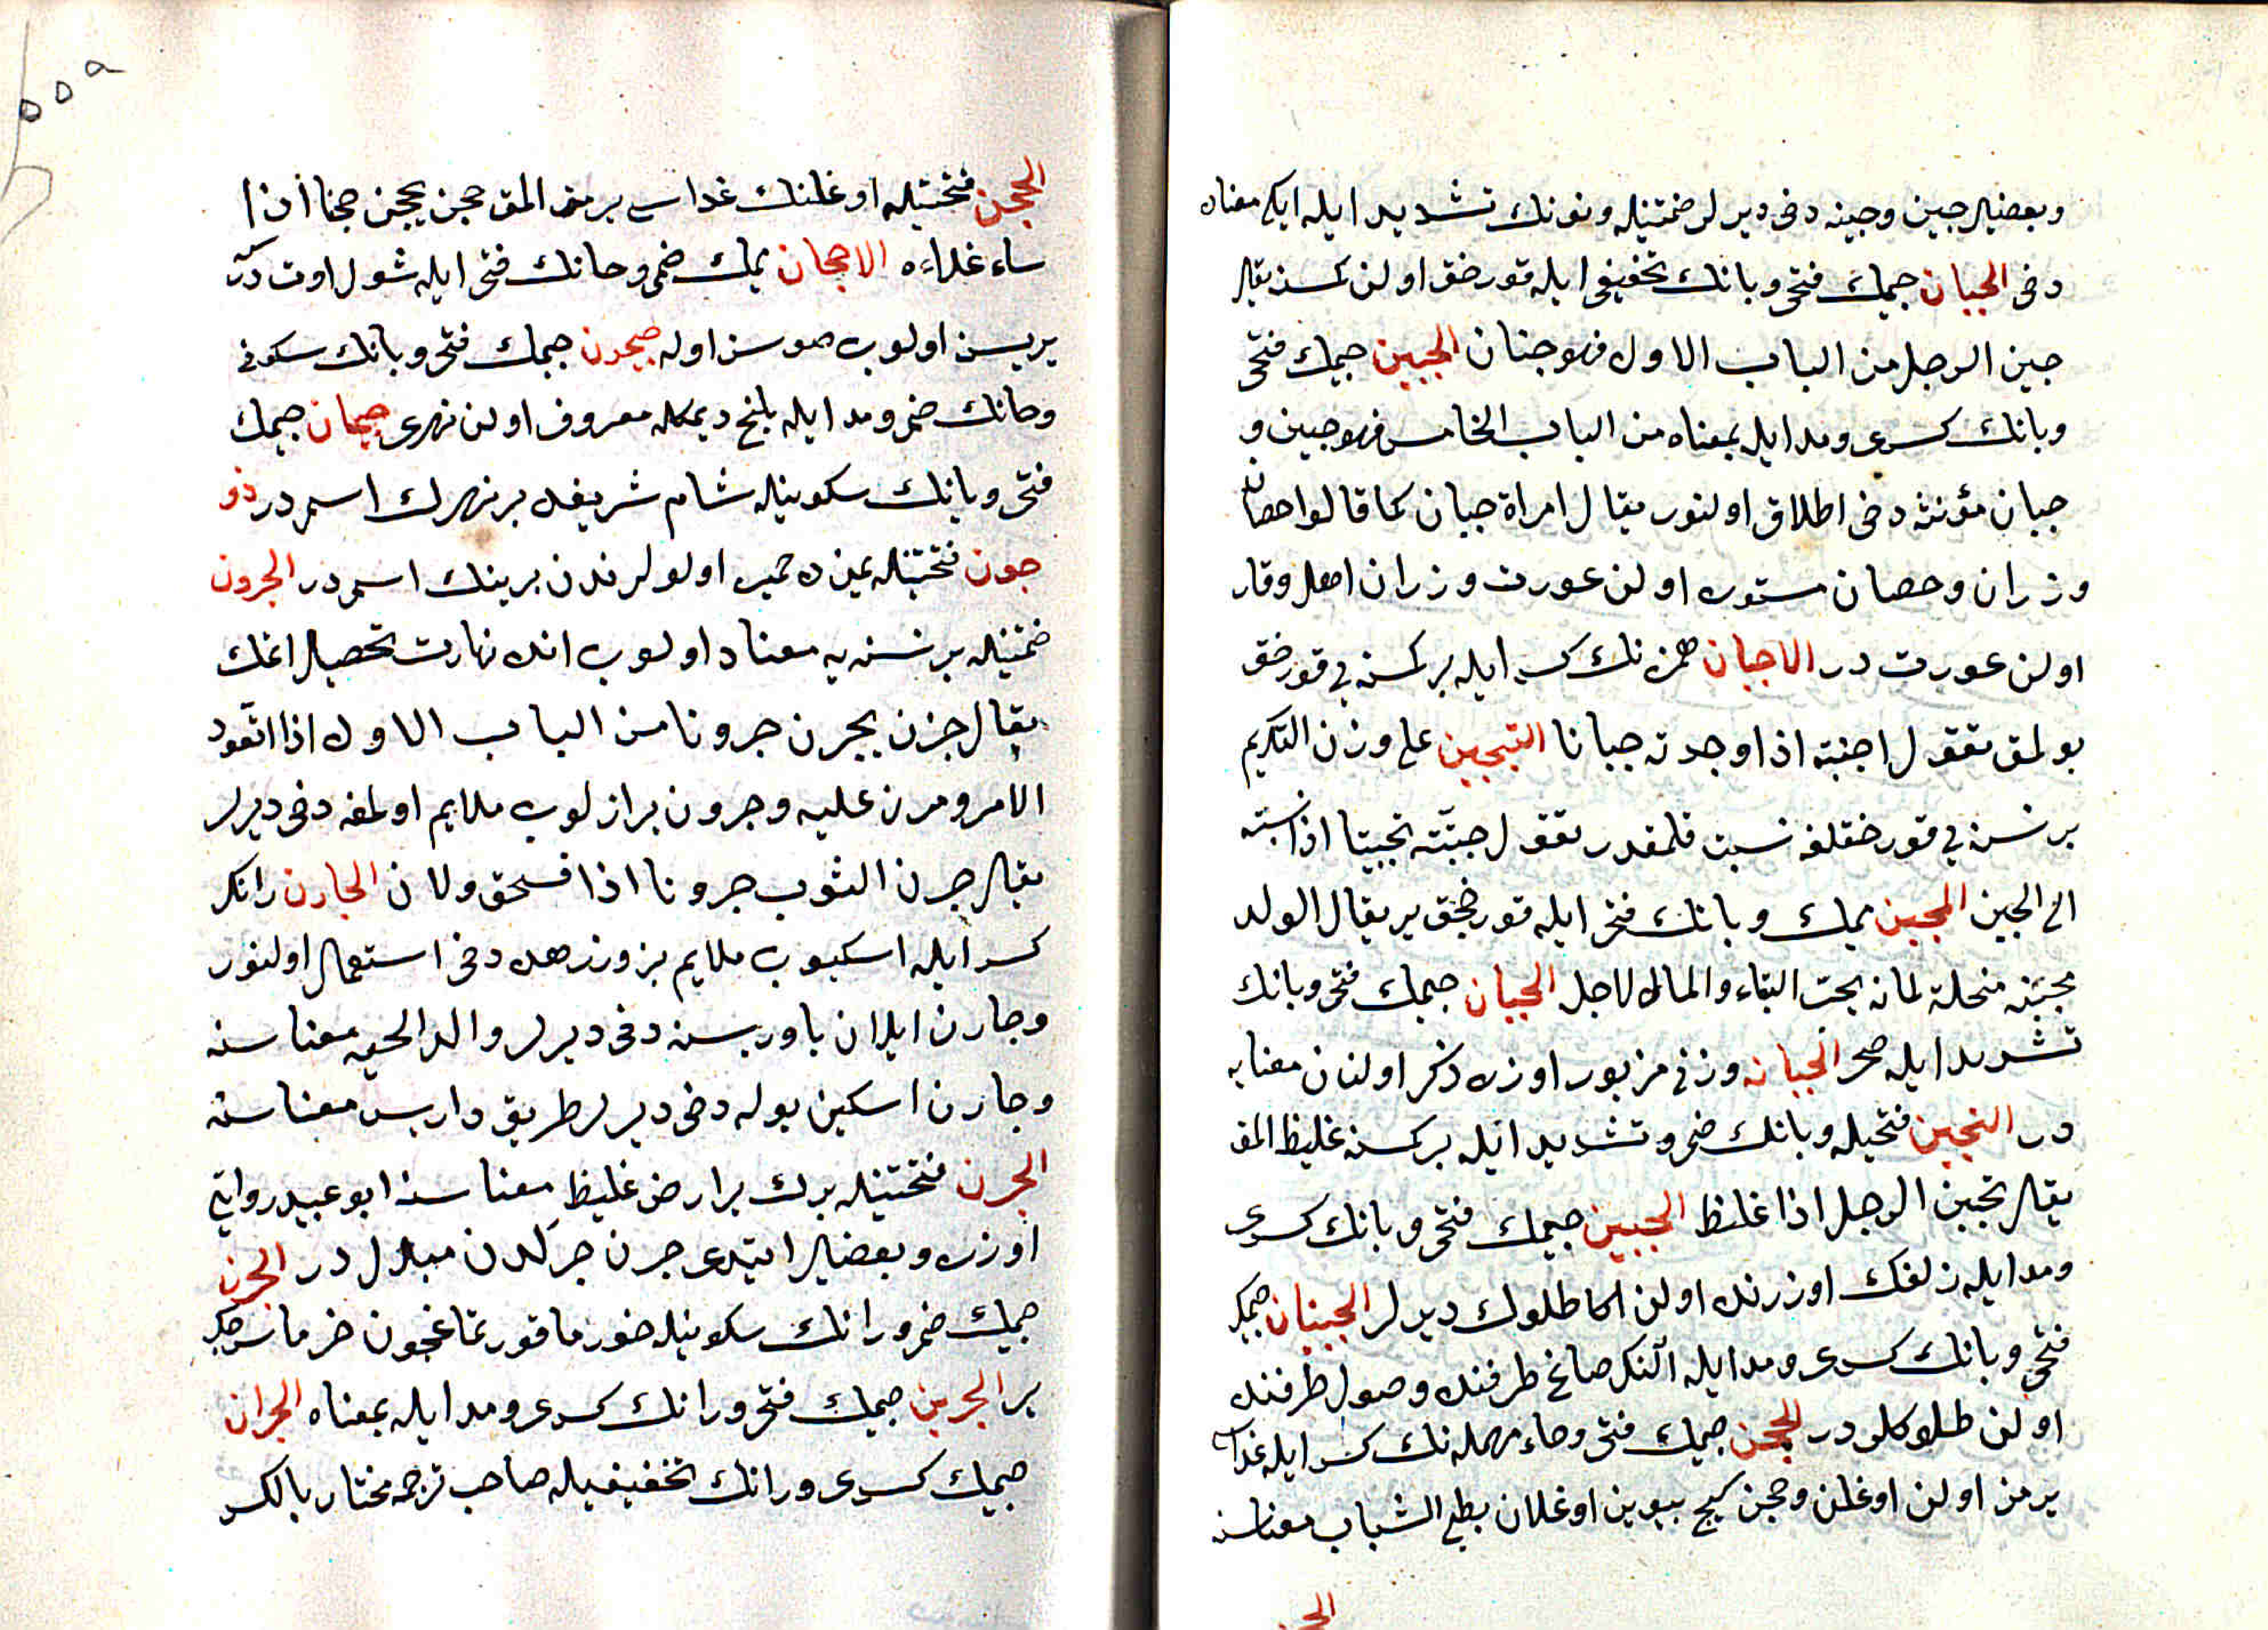 وبعضیلر جبن وجبنه دخی دیرلر ضمتیله ونونك تشدید ایله ایکی معناده
دخی الجبان جیمك فتحی وبانك تخفیفی ایله قورخق اولن کمسنه یقال
جبن الرجل من الباب الاول فهو جبان الجبین جیمك فتحی
وبانك کسری ومد ایله بمعناه من الباب الخامس فهو جبین و
جبان مؤنثه دخی اطلاق اولنور یقال امراة جبان کما قالوا حصان
ورزان وحصان مستوره اولن عورت ورزان اهل وقار
اولن عورت در الاجبان همزه نك کسر ایله بر کمسنه یی قورخق
بولمق تقول اجبنته اذا وجدته جبانا التجبین علی وزن التکریم
بر نسنه یی قورخقلغه نسبت قلمقدر تقول جبنته تجبینا اذا نسبته
الی الجبن المجبن میمك وبانك فتحی ایله قورخجق یر یقال الولد
مجبنة مبخلة لانه یحب البقاء والمال لاجله الجبان جیمك فتحی وبانك
تشدید ایله صحرا الجبانه وزنی مزبور اوزره ذکر اولنان معنایه
در التجبن فتحیله وبانك ضمی وتشدید ایله بر کمسنه غلیظ المق
یقال تجبن الرجل اذا غلظ الجبین جیمك فتحی وبانك کسری
ومد ایله زلفك اوزرنده اولن اکا طلولك دیرلر الجبینان جیمك
فتحی وبانك کسری ومد ایله النك صاغ طرفنده وصول طرفنده
اولن طلوکلر در الجحن جیمك فتحی وحاء مهمله نك کسر ایله غداسی
یرمز اولن اوغلن وجحن کیچ بیوین اوغلان بطیء الشباب معناسنه
الجحن
الجحن فتحتیله اوغلنك غداسی یرمز المق جحن یجحن جحنا اذا
ساء غذاءه الاجحان میمك ضمی وحانك فتحی ایله شول اوت در
یریسن اولوب صوسز اوله جیحون جیمك فتحی وبانك سکونی
وحانك ضمی ومد ایله بلخ دیمکله معروف اولن نهری جیحان جیمك
فتحی وبانك سکونیله شام شریفده بر نهرك اسمی در ذو
جدن فتحتیله یمن ده حمیر اولولرندن برینك اسمی در الجرون
ضمتیله بر نسنه یه معتاد اولوب انده مهارت تحصیل اتمك
یقال جرن یجرن جرونا من الباب الاول اذا تعود
الامر ومرن علیه وجرون بز ازلوب ملایم اولمغه دخی دیرلر
یقال جرن الثوب جرونا اذا انسحق ولان الجارن رانك
کسر ایله اسکیوب ملایم بز وزرهده دخی استعمال اولنور
وجارن ایلان یاوریسنه دخی دیرلر والد الحیه معناسنه
وجارن اسکین یوله دخی دیرلر طریق دارس معناسنه
الجرن فتحتیله برك یر ارض غلیظ معناسنه ابو عبید روایتی
اوزره وبعضیلر ایتدی جرن جرلدن مبدل در الجرن
جیمك ضمی ورانك سکونیله خورما قورتماغیچون خرمان سرجك
یر الجرین جیمك فتحی ورانك کسری ومد ایله بمعناه الجران
جیمك کسری ورانك تخفیفیله صاحب ترجمه مختار بالکسر